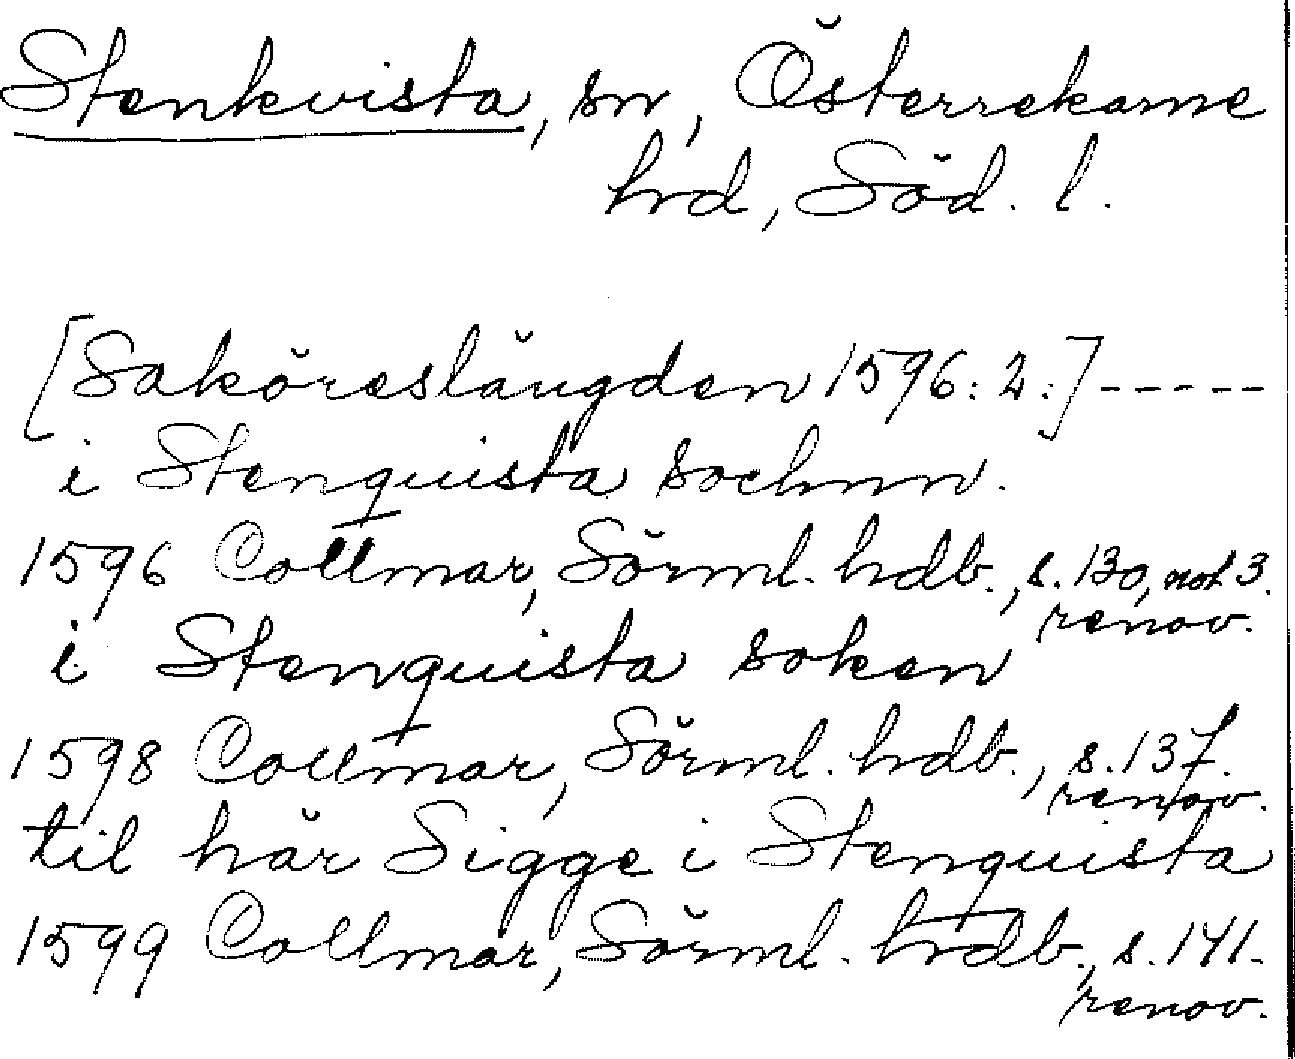 Stenkvista, sn, Österrekarne
hrd, Söd. l.
[Saköreslängden 1596: 2:] -----
i Stenquista sochnn.
1596 Collmar, Sörml. hdb., s. 130, not 3.
renov.
i Stenquista soken
1598 Collmar, Sörml. hdb., s. 137.
renov.
til här Sigge i Stenquista
1599 Collmar, Sörml. hrdb., s. 141.
renov.